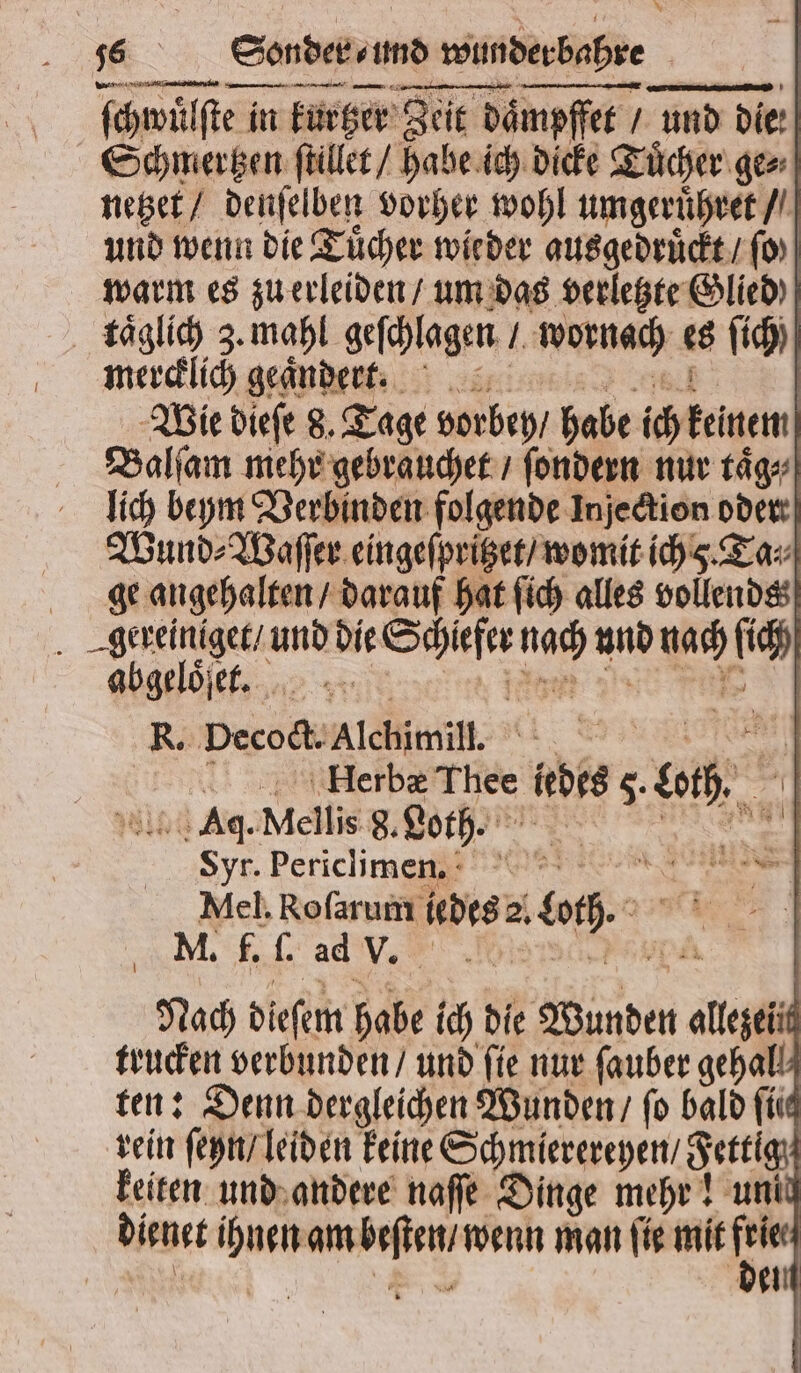 56 Sonder⸗und wunderbahre
ſchwuͤlſte in kurtzer Zeit daͤmpffet / und die
Schmertzen ſtillet / habe ich dicke Tuͤcher ge⸗
netzet / denſelben vorher wohl umgeruͤhret /
und wenn die Tuͤcher wieder ausgedruͤckt / ſo
warm es zu erleiden / um das verletzte Glied
taͤglich 3. mahl geſchlagen / wornach es ſich
mercklich geaͤndert.
Wie dieſe 8. Tage vorbey / habe ich keinem
Balſam mehr gebrauchet / ſondern nur taͤg⸗
lich beym Verbinden folgende Injection oder
Wund⸗Waſſer eingeſpritzet / womit ich 5. Ta⸗
ge angehalten / darauf hat ſich alles vollends
gereiniget / und die Schiefer nach und nach ſich
abgeloͤſet.
R. Decoct. Alchimill.
Herbæ Thee iedes 5. Loth.
Aq. Mellis 8. Loth.
Syr. Periclimen.
Mel. Roſarum iedes 2. Loth.
M. f. ſ. ad V.
Nach dieſem habe ich die Wunden allezeit
trucken verbunden / und ſie nur ſauber gehal⸗
ten: Denn dergleichen Wunden / ſo bald ſie
rein ſeyn / leiden keine Schmierereyen / Fettig⸗
keiten und andere naſſe Dinge mehr! und
dienet ihnen am beſten / wenn man ſie mit frie⸗
den